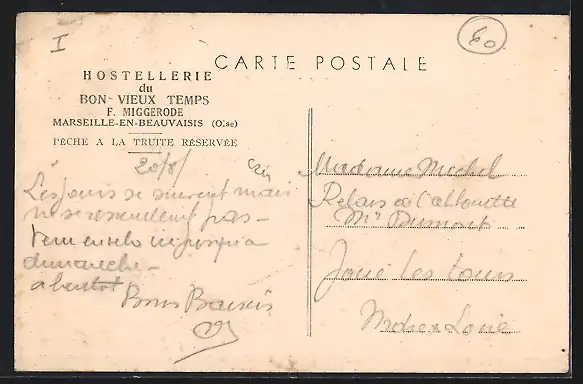 I
60
CARTE POSTALE
HOSTELLERIE
du
BON VIEUX TEMPS
F. MIGGERODE
MARSEILLE-EN-BEAUVAISIS (Oise)
PÊCHE A LA TRUITE RÉSERVÉE
Les jours se suivent mais
ne se ressemblent pas -
dimanche -
a bientot
Bons Baisers
Madame Michel
Relais de l'allouette
Mr Dumont
Joué les tours
Indre & Loire